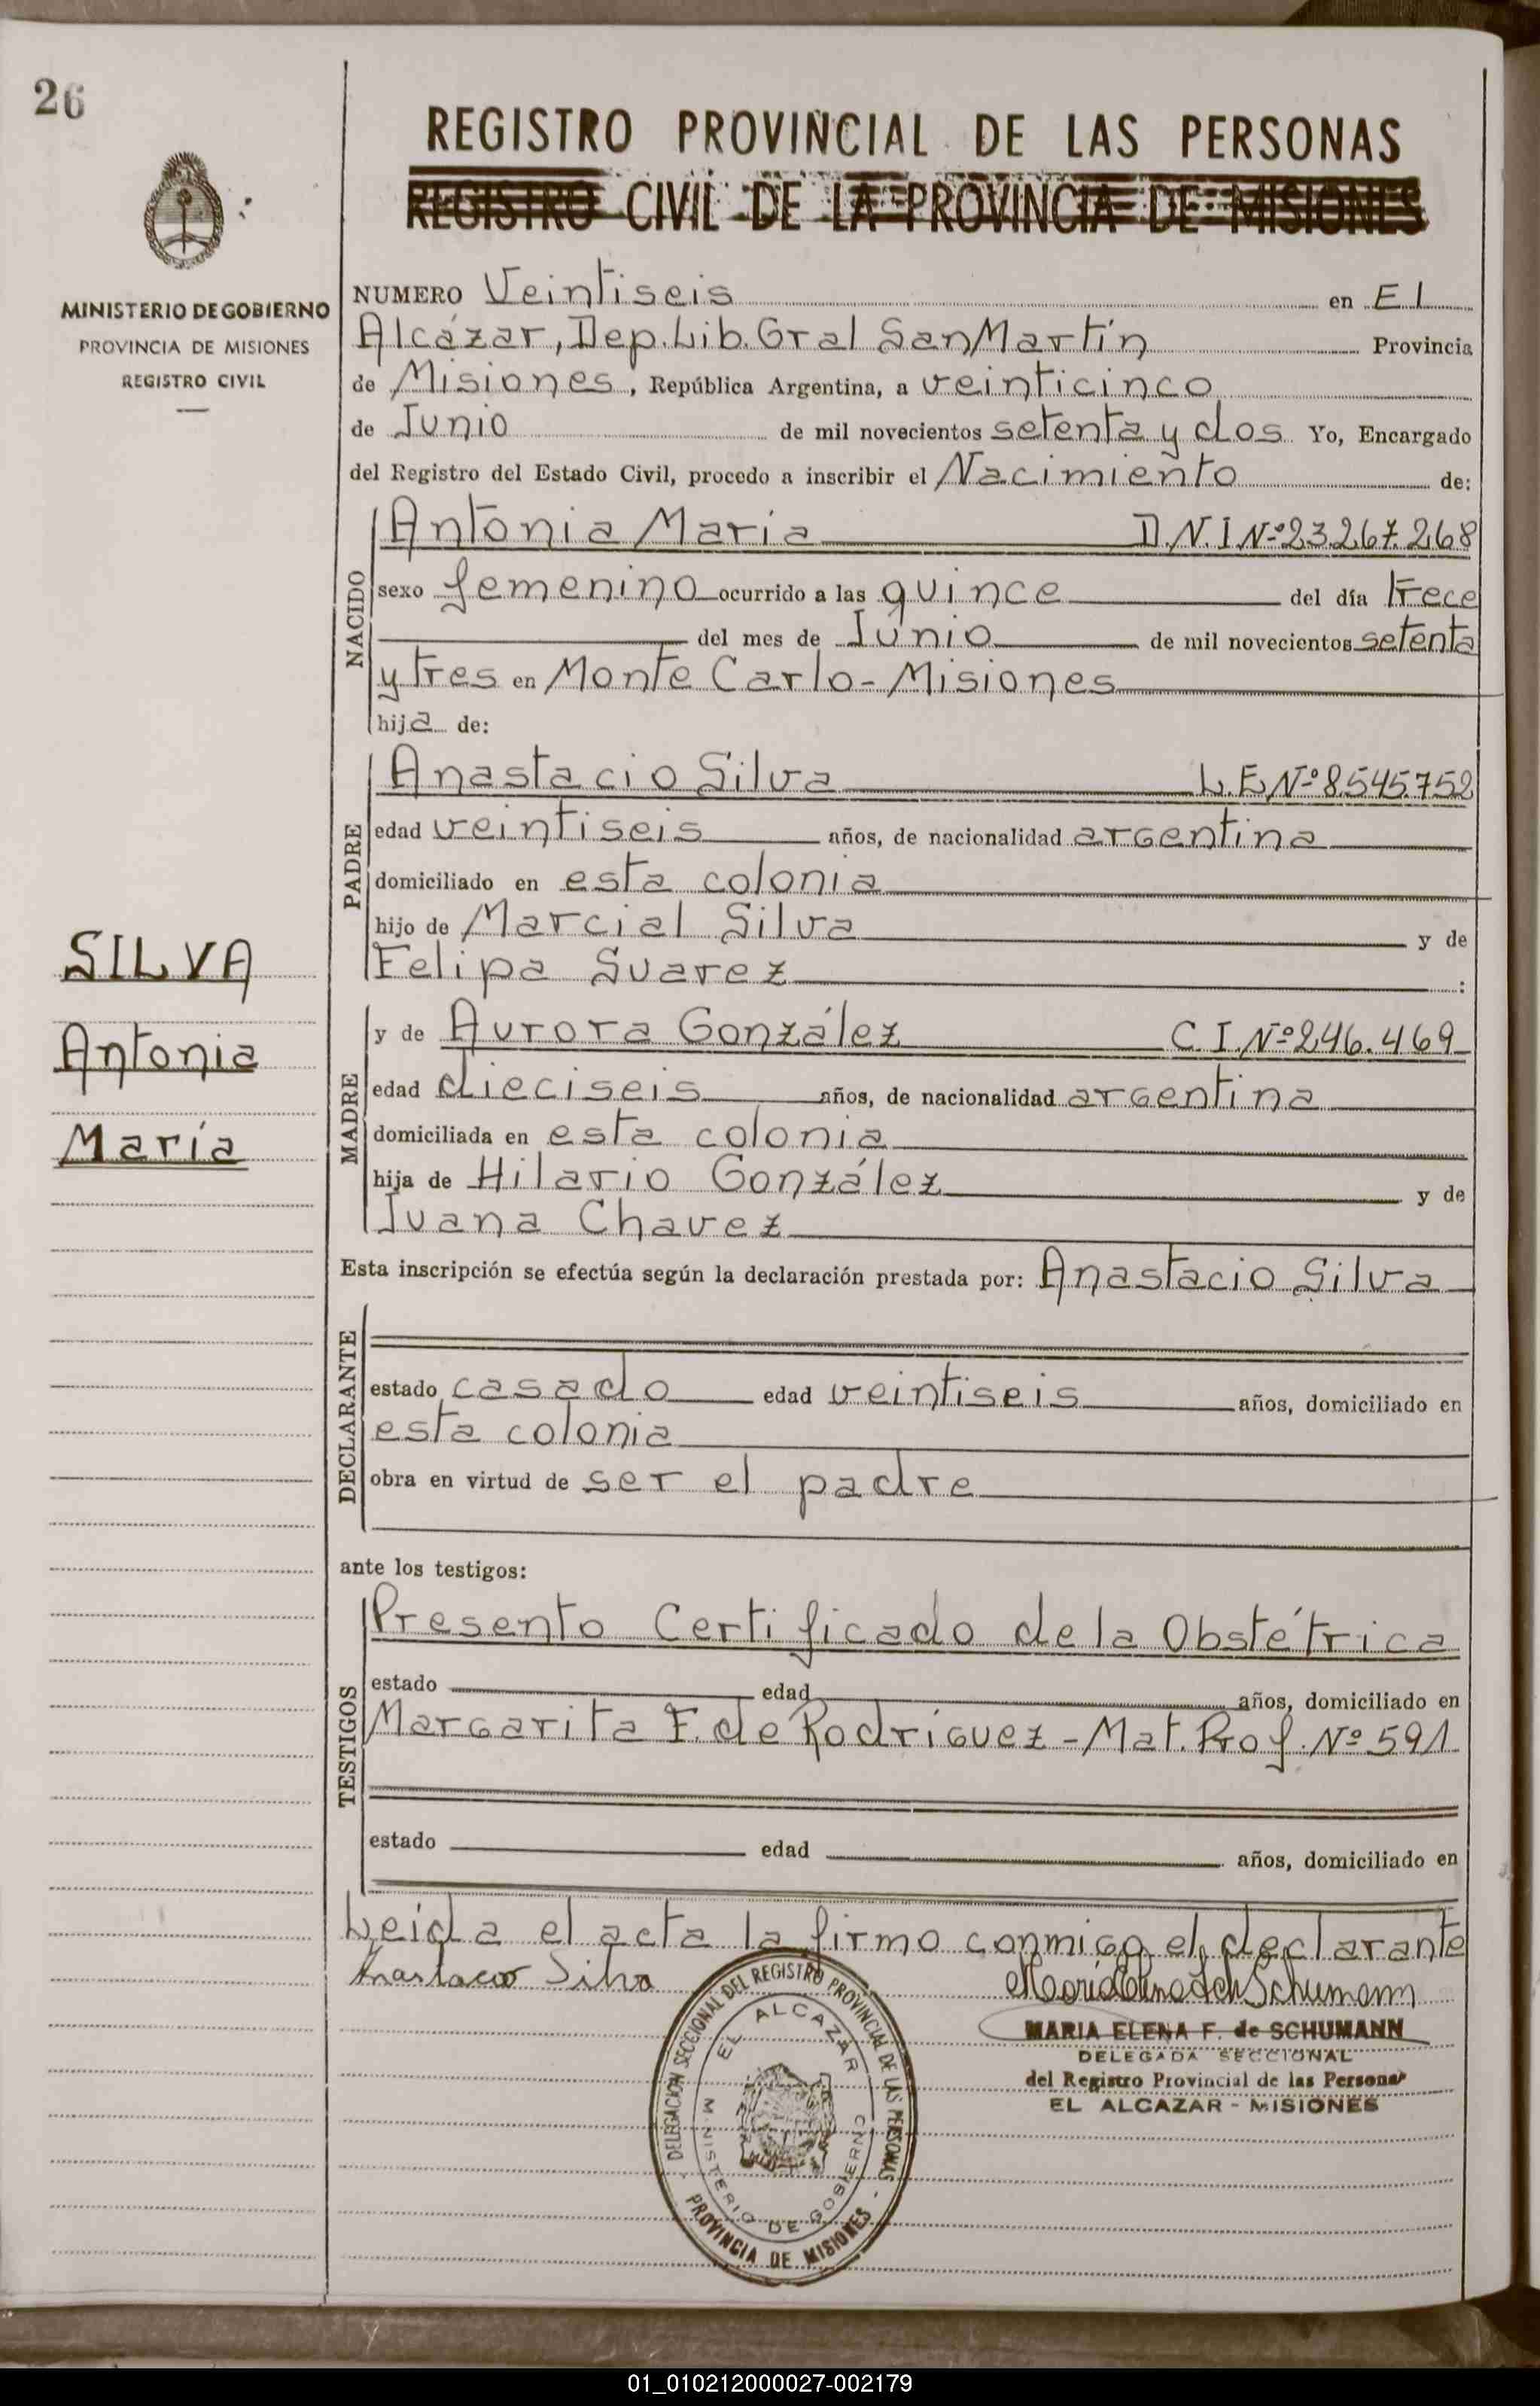 26
REGISTRO PROVINCIAL DE LAS PERSONAS
REGISTRO CIVIL DE LA PROVINCIA DE MISIONES
MINISTERIO DE GOBIERNO
PROVINCIA DE MISIONES
REGISTRO CIVIL
NUMERO Veintiseis en El
Alcázar, Dep. Lib. Gral San Martín Provincia
de Misiones, República Argentina, a veinticinco
de Junio de mil novecientos setenta y dos Yo, Encargado
del Registro del Estado Civil, procedo a inscribir el Nacimiento de:
NACIDO
Antonia María D.N.I Nº 23.267.268
sexo femenino ocurrido a las quince del día trece
del mes de Junio de mil novecientos setenta
y tres en Monte Carlo - Misiones
hija de:
PADRE
Anastacio Silva L.E Nº 8.545.752
edad veintiseis años, de nacionalidad argentina
domiciliado en esta colonia
hijo de Marcial Silva y de
Felipa Suarez :
SILVA
Antonia
María
MADRE
y de Aurora González C.I. Nº 246.469
edad dieciseis años, de nacionalidad argentina
domiciliada en esta colonia
hija de Hilario González y de
Juana Chavez
Esta inscripción se efectúa según la declaración prestada por: Anastacio Silva
DECLARANTE
estado casado edad veintiseis años, domiciliado en
esta colonia
obra en virtud de ser el padre
ante los testigos:
TESTIGOS
Presento Certificado de la Obstétrica
estado edad años, domiciliado en
Margarita F. de Rodríguez - Mat. Prof. Nº 591
estado edad años, domiciliado en
Leida el acta la firmo conmigo el declarante
Anastacio Silva
MARIA ELENA F. de SCHUMANN
DELEGADA SECCIONAL
del Registro Provincial de las Personas
EL ALCAZAR - MISIONES
DELEGACION SECCIONAL DEL REGISTRO PROVINCIAL DE LAS PERSONAS
EL ALCAZAR
MINISTERIO DE GOBIERNO
PROVINCIA DE MISIONES
01_010212000027-002179